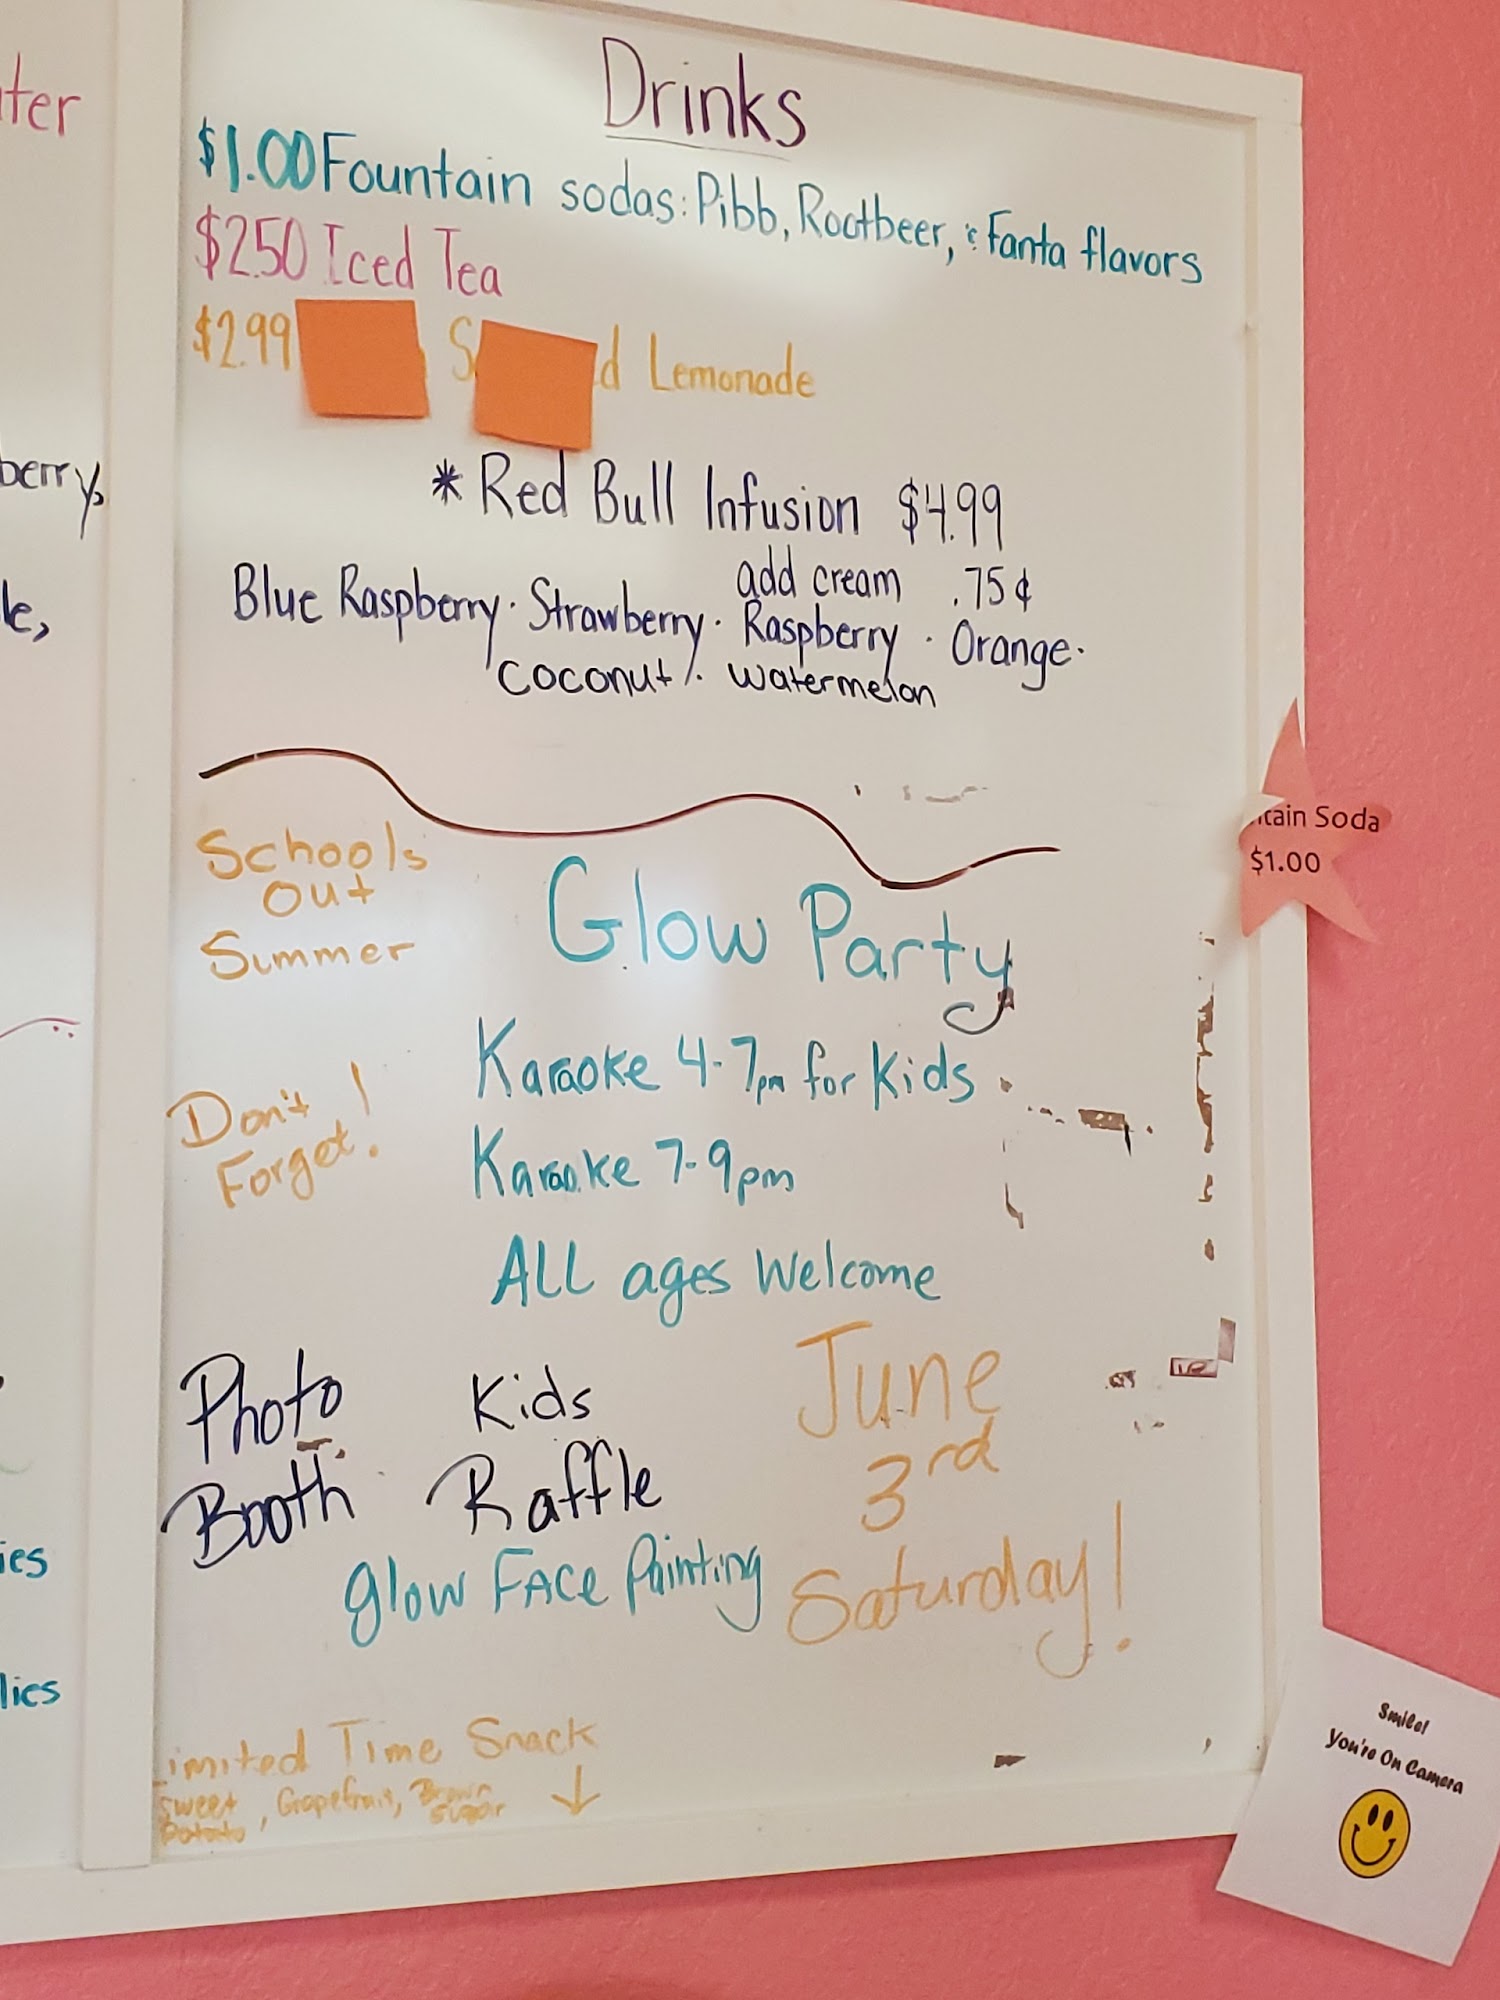 Drinks
$1.00 Fountain sodas: Pibb, Rootbeer, & Fanta flavors
$2.50 Iced Tea
$2.99 Lemonade
* Red Bull Infusion $4.99
add cream .75¢
Blue Raspberry · Strawberry · Raspberry · Orange ·
coconut · watermelon
Schools
Out
Summer
Glow Party
Karaoke 4-7pm for Kids
Don't
Forget!
Karaoke 7-9pm
ALL ages Welcome
Photo
Booth
Kids
Raffle
June
3rd
Saturday!
glow FACE Painting
Limited Time Snack
Sweet
Potato, Grapefruit, Brown
Sugar
Soda
$1.00
Smile!
You're On Camera